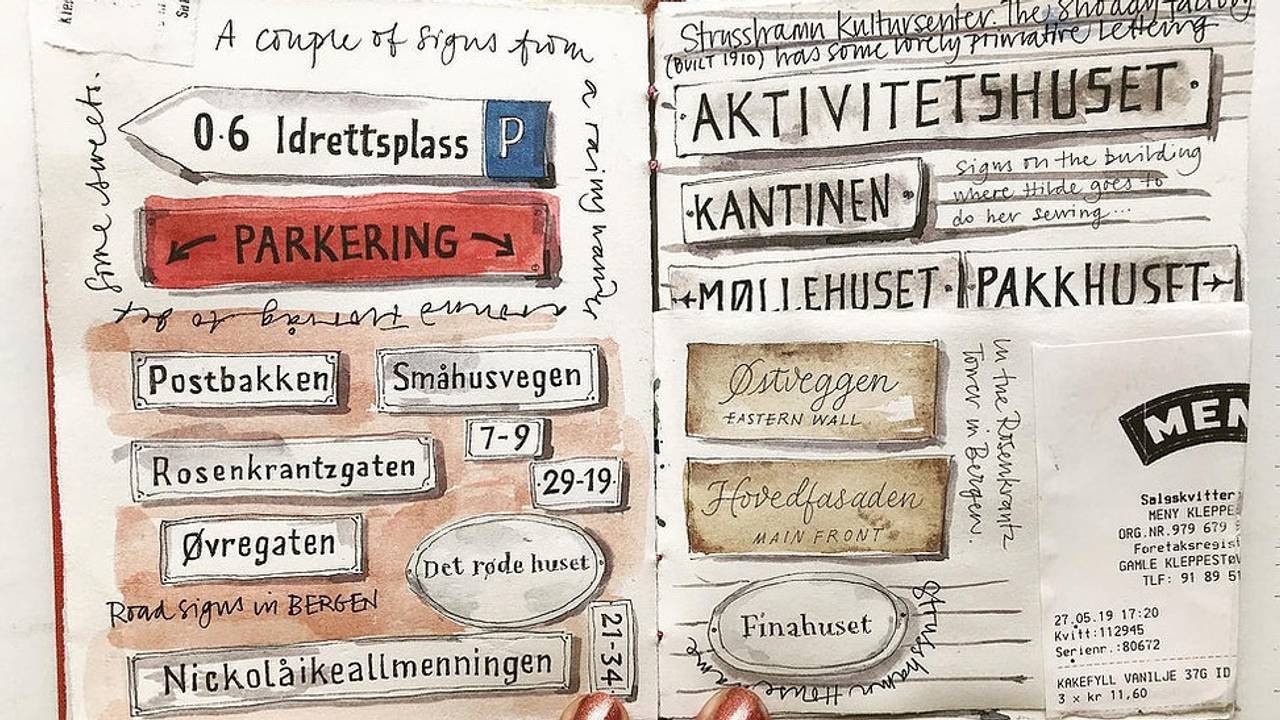 A couple of signs from
a rainy wander
around Florvåg to get
some sweets.
0·6 Idrettsplass P
PARKERING
Postbakken
Småhusvegen
7-9
Rosenkrantzgaten
29-19
Øvregaten
Det røde huset
Road signs in BERGEN
21-34
Nickolåikeallmenningen
Strusshamn Kultursenter. The shoddy factory
(BUILT 1910) has some lovely primative lettering
AKTIVITETSHUSET
KANTINEN
Signs on the building
where Hilde goes to
do her sewing...
MØLLEHUSET
PAKKHUSET
Østveggen
EASTERN WALL
Hovedfasaden
MAIN FRONT
In the Rosenkrantz
Tower in Bergen.
Finahuset
Strusshamn House name
MEN
Salgskvitter
MENY KLEPPE
ORG.NR.979 679
Foretaksregist
GAMLE KLEPPESTØV
TLF: 91 89 51
27.05.19 17:20
Kvitt:112945
Serienr.:80672
KAKEFYLL VANILJE 37G ID
3 x kr 11,60